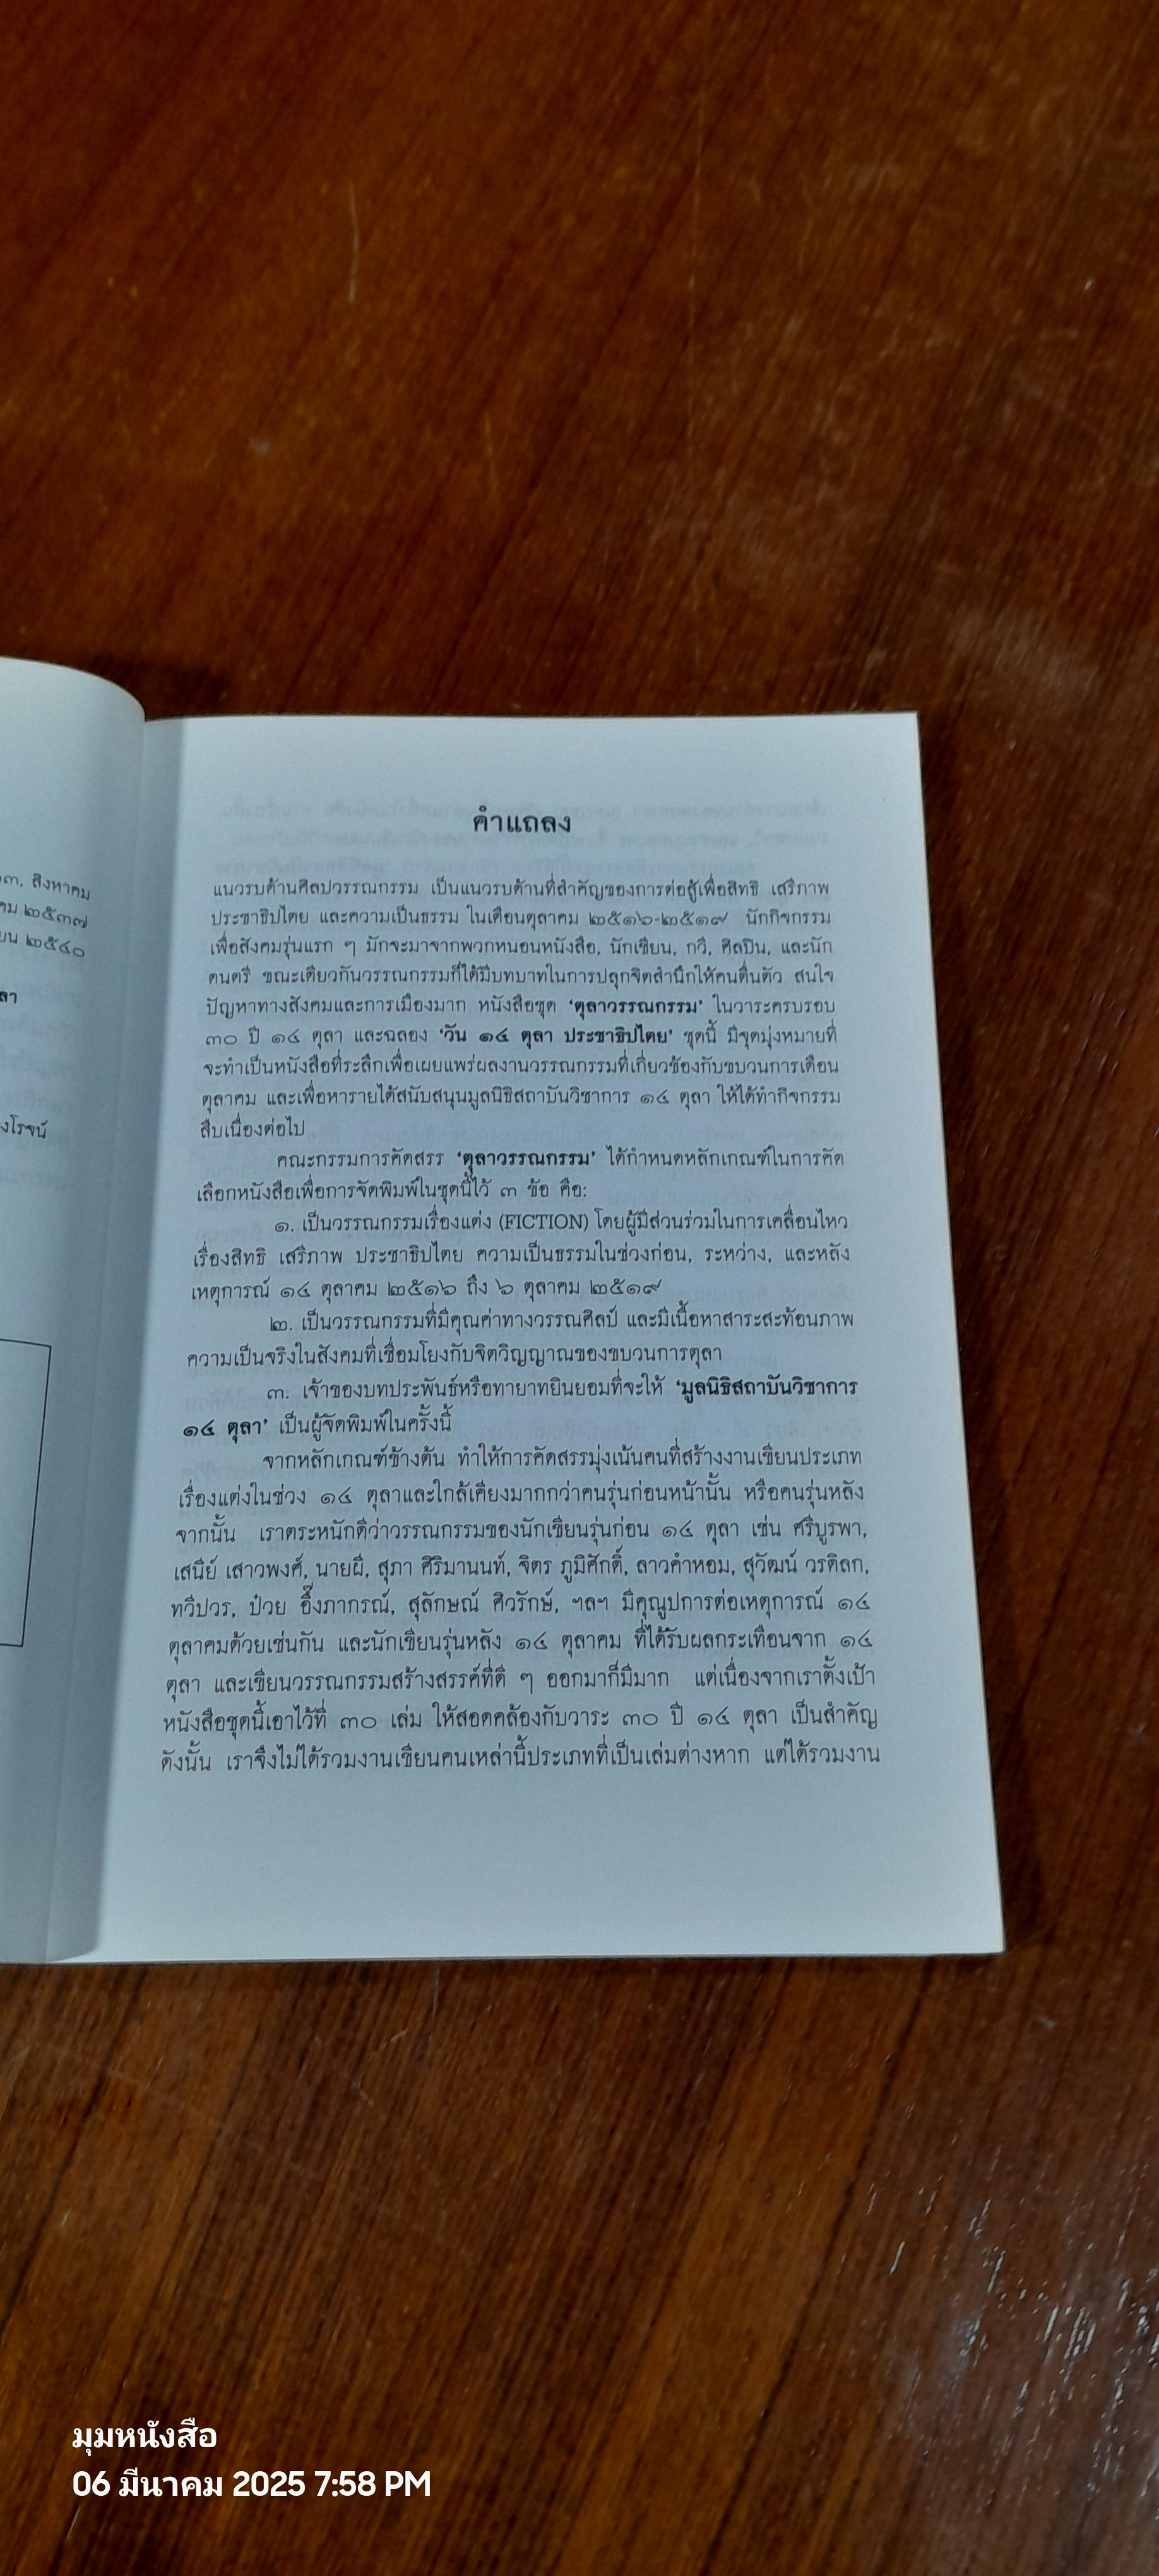 ๓, สิงหาคม
คม ๒๕๓๗
ยน ๒๕๔๐
ลา
งโรจน์
คำแถลง
แนวรบด้านศิลปวรรณกรรม เป็นแนวรบด้านที่สำคัญของการต่อสู้เพื่อสิทธิ เสรีภาพ
ประชาธิปไตย และความเป็นธรรม ในเดือนตุลาคม ๒๕๑๖-๒๕๑๙ นักกิจกรรม
เพื่อสังคมรุ่นแรก ๆ มักจะมาจากพวกหนอนหนังสือ, นักเขียน, กวี, ศิลปิน, และนัก
ดนตรี ขณะเดียวกันวรรณกรรมก็ได้มีบทบาทในการปลุกจิตสำนึกให้คนตื่นตัว สนใจ
ปัญหาทางสังคมและการเมืองมาก หนังสือชุด ‘ตุลาวรรณกรรม’ ในวาระครบรอบ
๓๐ ปี ๑๔ ตุลา และฉลอง ‘วัน ๑๔ ตุลา ประชาธิปไตย’ ชุดนี้ มีจุดมุ่งหมายที่
จะทำเป็นหนังสือที่ระลึกเพื่อเผยแพร่ผลงานวรรณกรรมที่เกี่ยวข้องกับขบวนการเดือน
ตุลาคม และเพื่อหารายได้สนับสนุนมูลนิธิสถาบันวิชาการ ๑๔ ตุลา ให้ได้ทำกิจกรรม
สืบเนื่องต่อไป
คณะกรรมการคัดสรร ‘ตุลาวรรณกรรม’ ได้กำหนดหลักเกณฑ์ในการคัด
เลือกหนังสือเพื่อการจัดพิมพ์ในชุดนี้ไว้ ๓ ข้อ คือ:
๑. เป็นวรรณกรรมเรื่องแต่ง (FICTION) โดยผู้มีส่วนร่วมในการเคลื่อนไหว
เรื่องสิทธิ เสรีภาพ ประชาธิปไตย ความเป็นธรรมในช่วงก่อน, ระหว่าง, และหลัง
เหตุการณ์ ๑๔ ตุลาคม ๒๕๑๖ ถึง ๖ ตุลาคม ๒๕๑๙
๒. เป็นวรรณกรรมที่มีคุณค่าทางวรรณศิลป์ และมีเนื้อหาสาระสะท้อนภาพ
ความเป็นจริงในสังคมที่เชื่อมโยงกับจิตวิญญาณของขบวนการตุลา
๓. เจ้าของบทประพันธ์หรือทายาทยินยอมที่จะให้ ‘มูลนิธิสถาบันวิชาการ
๑๔ ตุลา’ เป็นผู้จัดพิมพ์ในครั้งนี้
จากหลักเกณฑ์ข้างต้น ทำให้การคัดสรรมุ่งเน้นคนที่สร้างงานเขียนประเภท
เรื่องแต่งในช่วง ๑๔ ตุลาและใกล้เคียงมากกว่าคนรุ่นก่อนหน้านั้น หรือคนรุ่นหลัง
จากนั้น เราตระหนักดีว่าวรรณกรรมของนักเขียนรุ่นก่อน ๑๔ ตุลา เช่น ศรีบูรพา,
เสนีย์ เสาวพงศ์, นายผี, สุภา ศิริมานนท์, จิตร ภูมิศักดิ์, ลาวคำหอม, สุวัฒน์ วรดิลก,
ทวีปวร, ป๋วย อึ๊งภากรณ์, สุลักษณ์ ศิวรักษ์, ฯลฯ มีคุณูปการต่อเหตุการณ์ ๑๔
ตุลาคมด้วยเช่นกัน และนักเขียนรุ่นหลัง ๑๔ ตุลาคม ที่ได้รับผลกระเทือนจาก ๑๔
ตุลา และเขียนวรรณกรรมสร้างสรรค์ที่ดี ๆ ออกมาก็มีมาก แต่เนื่องจากเราตั้งเป้า
หนังสือชุดนี้เอาไว้ที่ ๓๐ เล่ม ให้สอดคล้องกับวาระ ๓๐ ปี ๑๔ ตุลา เป็นสำคัญ
ดังนั้น เราจึงไม่ได้รวมงานเขียนคนเหล่านี้ประเภทที่เป็นเล่มต่างหาก แต่ได้รวมงาน
มุมหนังสือ
06 มีนาคม 2025 7:58 PM